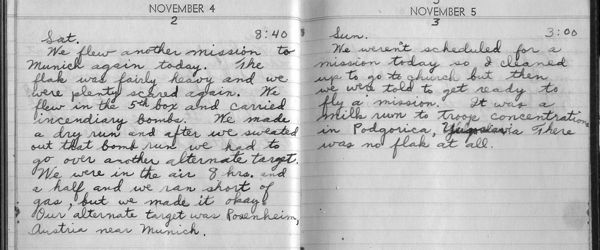 NOVEMBER 4
2
Sat. 8:40
We flew another mission to
Munich again today. The
flak was fairly heavy and we
were plenty scared again. We
flew in the 5th box and carried
incendiary bombs. We made
a dry run and after we sweated
out that bomb run we had to
go over another alternate target.
We were in the air 8 hrs. and
a half and we ran short of
gas, but we made it okay.
Our alternate target was Rosenheim,
Austria near Munich.
NOVEMBER 5
3
Sun. 3:00
We weren't scheduled for a
mission today so I cleaned
up to go to church but then
we were told to get ready to
fly a mission. It was a
milk run to troop concentrations
in Podgorica, Yugoslavia There
was no flak at all.